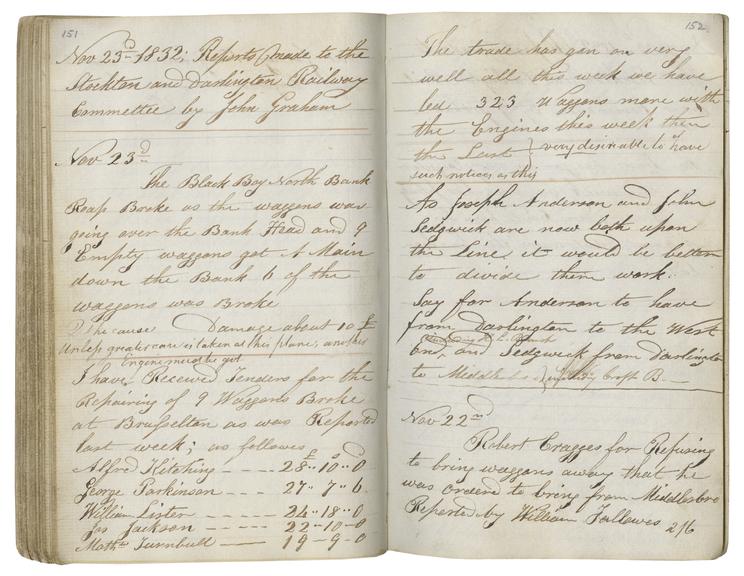 151
Nov 23d 1832; Reports made to the
Stockton and Darlington Railway
Committee by John Graham
Nov 23d
The Black Boy North Bank
Roap Broke as the waggons was
going over the Bank Head and 9
Empty waggons got A Main
down the Bank 6 of the
waggons was Broke
The cause Damage about 10 £
Unless greater care is taken at this plane, another
Engineman be got
I have Receved Tenders for the
Repairing of 9 Waggons Broke
at Brusselton as was Reported
last week; as follows
£ s D
Alfred Kitching - - - - 28 " 10 " 0
George Parkinson - - - - 27 " 7 " 6
William Lister - - - - 24 " 18 " 0
Jos Jackson - - - - 22 - 10 - 0
Mathw Turnbull - - - 19 - 9 - 0
152
The trade has gon on very
well all this week we have
led 323 Waggons more with
the Engines this week then
the Last } very desireable to have
such notices as this
As Joseph Anderson and John
Sedgwick are now both upon
the Line it would be better
to divide them work.
Say for Anderson to have
from Darlington to the West
End, and Sedgwick from Darlington
to Middlesbro
Nov 22nd
Robert Cragges for Refusing
to bring waggons away that he
was ordered to bring from Middlesbro
Reported by William Fallowes 2/6